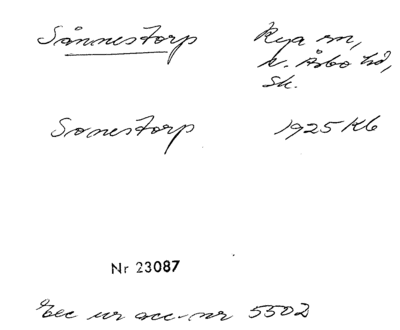 Sånnestorp Rya sn,
N. Åsbo hd,
Sk.
Sonestorp 1925 Kb
Nr 23087
Exc ur acc-nr 5502